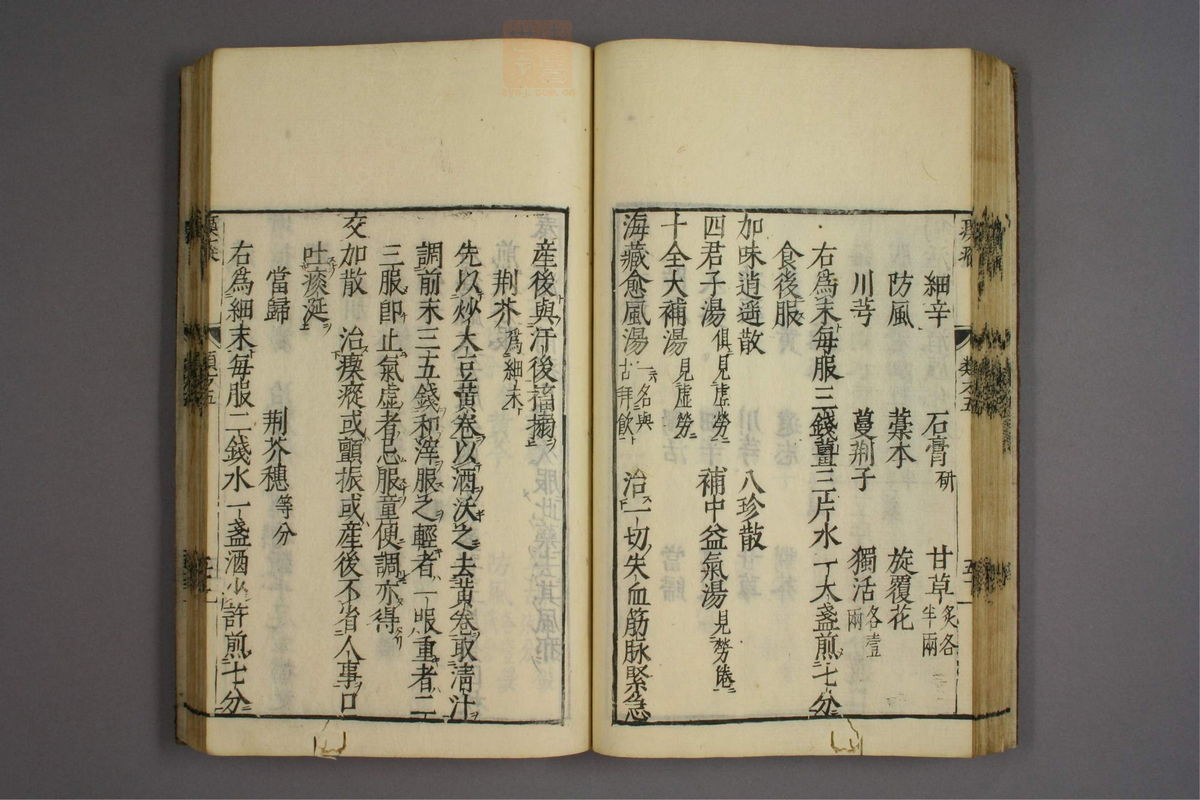 細辛 石膏研 甘草炙各半兩
防風 藁本 旋覆花
川芎 蔓荊子 獨活各壹兩
右爲末每服三錢薑三片水一大盞煎七分
食後服
加味逍遥散 八珍散
四君子湯俱見虚勞 補中益氣湯見勞倦
十全大補湯見虚勞
海藏愈風湯一名與古拜飲 治一切失血筋脉緊急
產後與汗後搐搦
荊芥爲細末
先以炒大豆黄卷以酒沃之去黄卷取清汁
調前末三五錢和滓服之輕者一服重者二
三服即止氣虚者忌服童便調亦得
交加散 治瘈瘲或顫振或產後不省人事口
吐痰涎
當歸 荊芥穗等分
右爲細末每服二錢水一盞酒少許煎七分